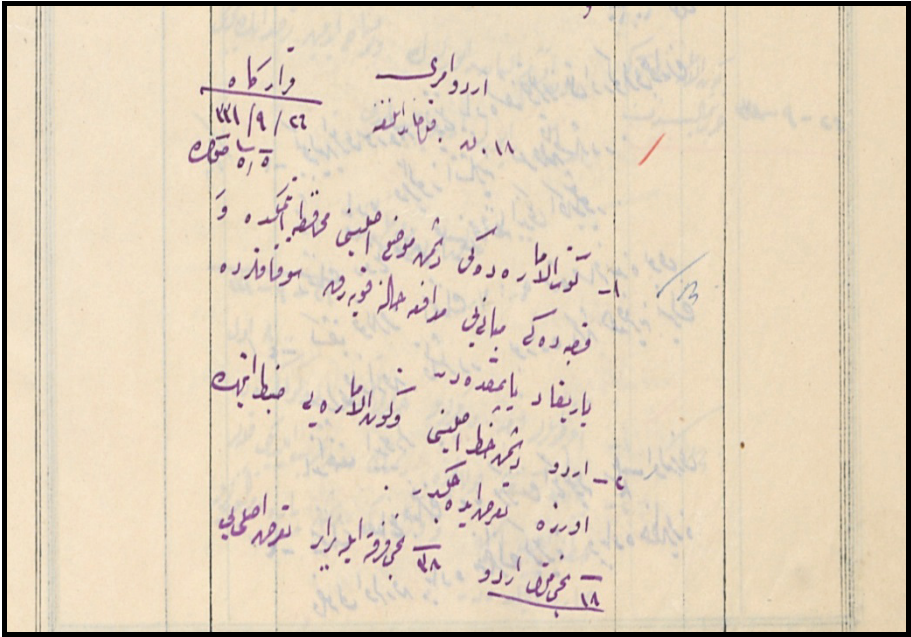 اردو امری
قرارگاه
٢٦/٩/٣٣١
١- كوت الاماره ده كی دشمن موضع اصلیسنی محافظه ایتمكده و
قصبه ده كی مبانی یی مدافعه حالنه قویه رق سوقاقلرده
باریقاد یاپمقده در
٢- اردو دشمن خط اصلیسنی و كوت الاماره یی ضبط ایتمك
اوزره تعرض ایده جكدر.
١٨ نجی قول اردو ٣٨ نجی فرقه ایله برابر تعرض اصلی یی